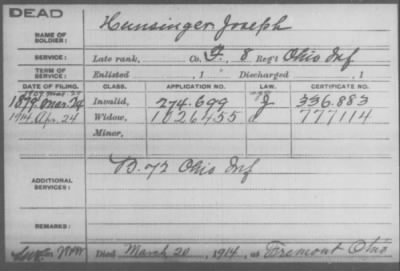 DEAD
NAME OF SOLDIER: Hunsinger, Joseph
SERVICE: Late rank, Co. F, 8 Reg't Ohio Inf
TERM OF SERVICE: Enlisted , 1 Discharged , 1
DATE OF FILING. CLASS. APPLICATION NO. LAW. CERTIFICATE NO.
1879 Mar. 24 Invalid, 274.699 J 336.883
1914 Apr. 24 Widow, 1026455 777114
Minor,
ADDITIONAL SERVICES: B. 72 Ohio Inf
REMARKS:
Died March 20, 1914, at Fremont Ohio